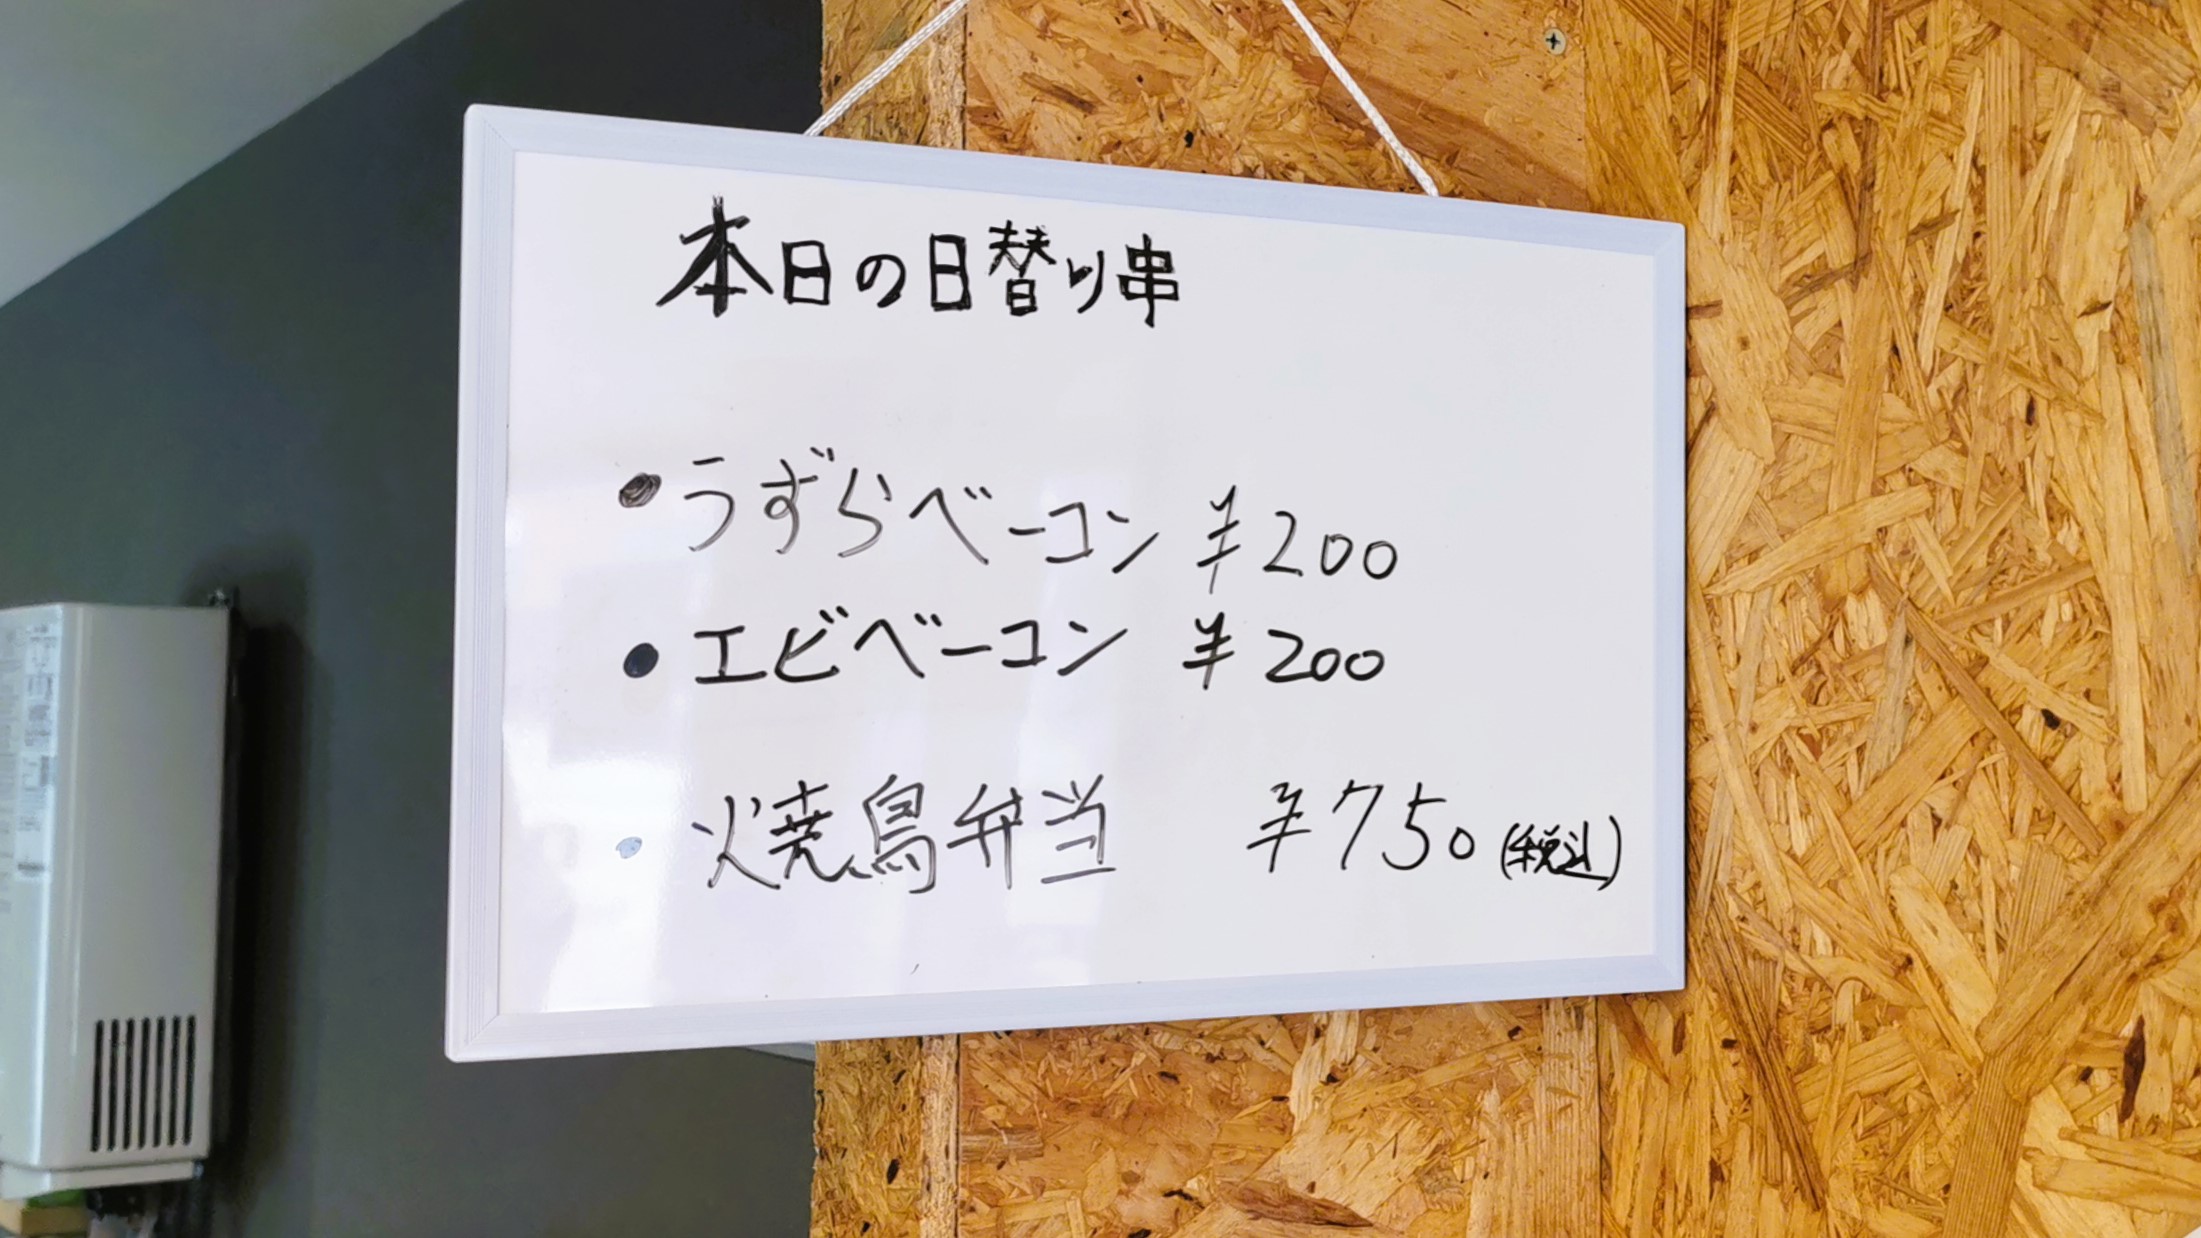 本日の日替り串
・うずらベーコン ¥200
・エビベーコン ¥200
・焼鳥弁当 ¥750(税込)